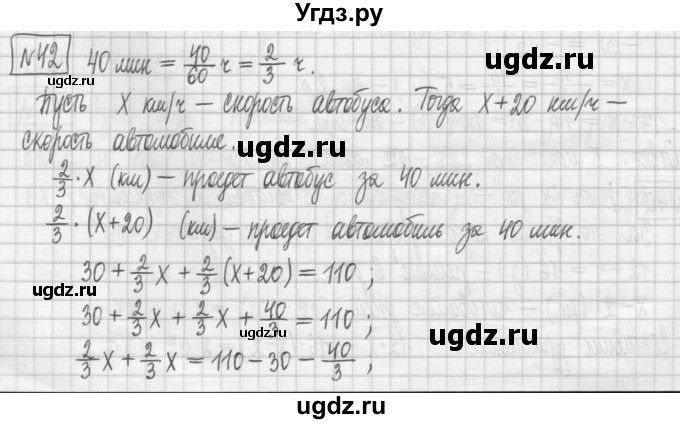 Угдз.ру
№42 40 мин = 40/60 ч = 2/3 ч.
Пусть x км/ч – скорость автобуса. Тогда x+20 км/ч –
ugdz.ru
скорость автомобиле.
ugdz.ru ugdz.ru
2/3 · x (км) – проедет автобус за 40 мин.
2/3 · (x+20) (км) – проедет автомобиль за 40 мин.
30 + 2/3 x + 2/3 (x+20) = 110 ;
ugdz.ru
30 + 2/3 x + 2/3 x + 40/3 = 110 ;
ugdz.ru
2/3 x + 2/3 x = 110 – 30 – 40/3 ;
ugdz.ru